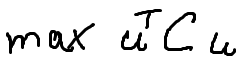 max u^T C u